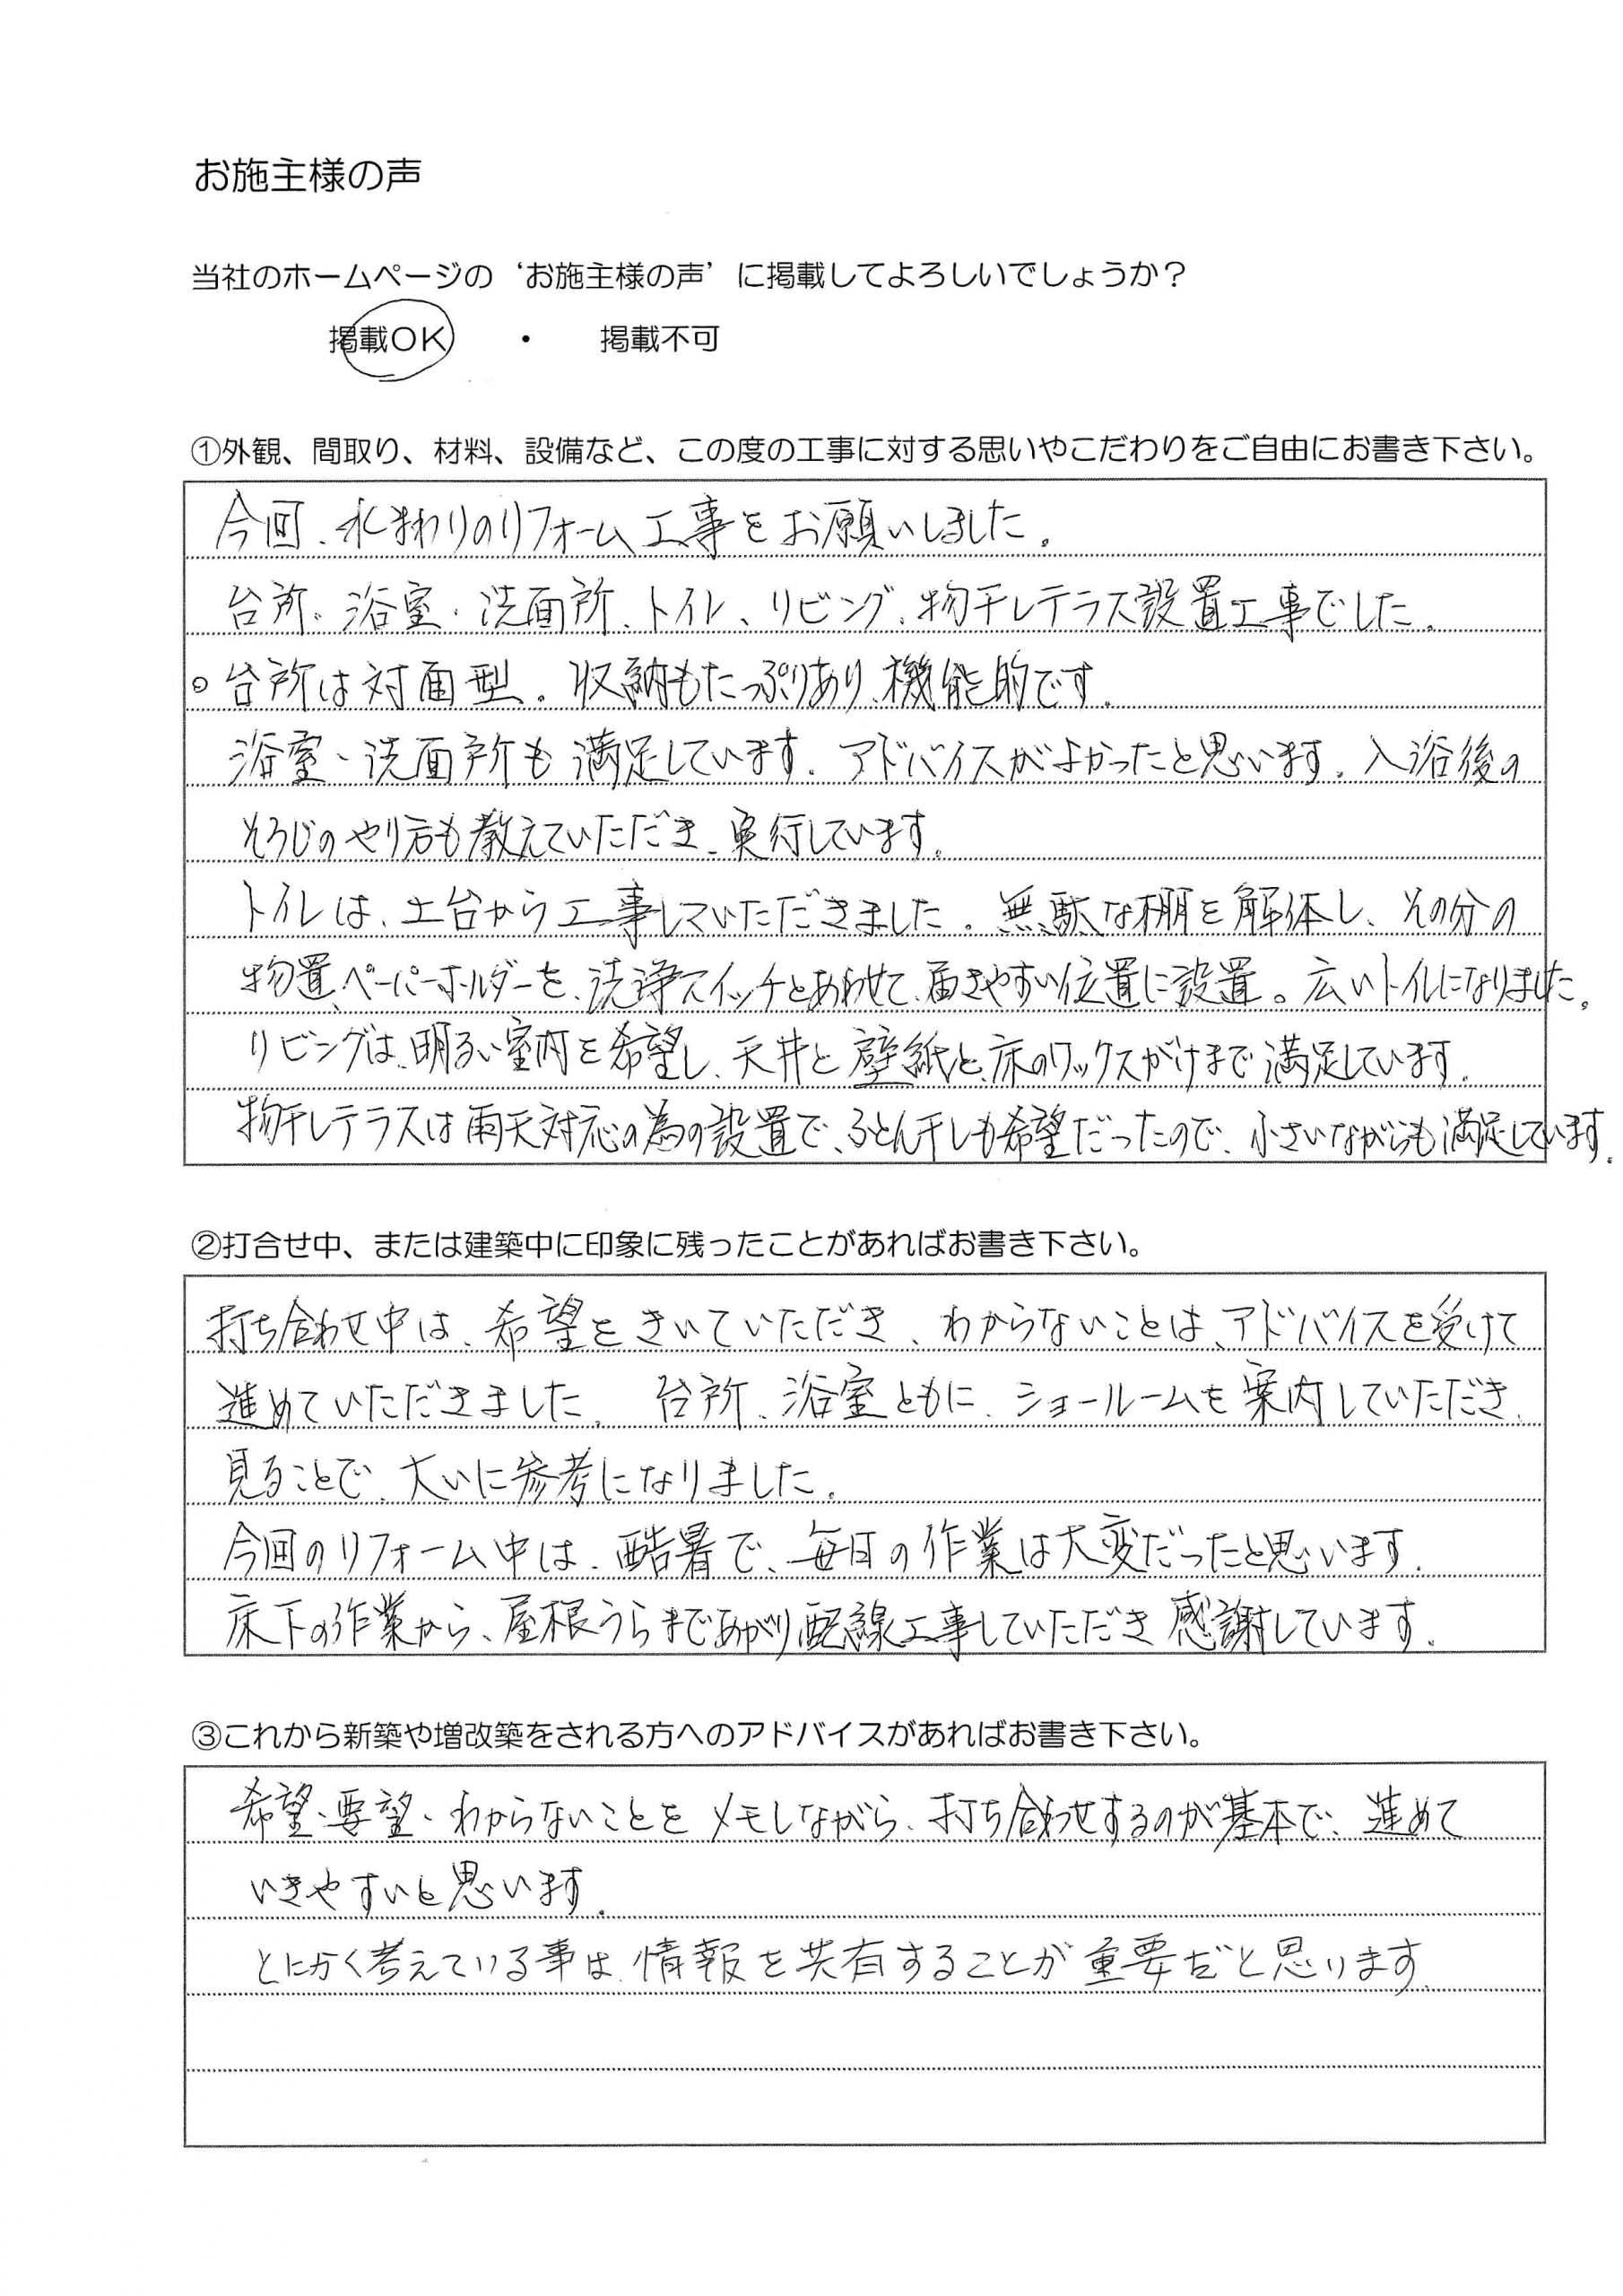 お施主様の声
当社のホームページの‘お施主様の声’に掲載してよろしいでしょうか？
掲載OK ・ 掲載不可
①外観、間取り、材料、設備など、この度の工事に対する思いやこだわりをご自由にお書き下さい。
今回、水まわりのリフォーム工事をお願いしました。
台所、浴室、洗面所、トイレ、リビング、物干しテラス設置工事でした。
○台所は対面型。収納もたっぷりあり、機能的です。
浴室、洗面所も満足しています。アドバイスがよかったと思います。入浴後の
そうじのやり方も教えていただき、実行しています。
トイレは、土台から工事していただきました。無駄な棚を解体し、その分の
物置、ペーパーホルダーを、洗浄スイッチとあわせて、届きやすい位置に設置。広いトイレになりました。
リビングは、明るい室内を希望し、天井と壁紙と、床のワックスがけまで満足しています。
物干しテラスは雨天対応の為の設置で、ふとん干しも希望だったので、小さいながらも満足しています。
②打合せ中、または建築中に印象に残ったことがあればお書き下さい。
打ち合わせ中は、希望をきいていただき、わからないことは、アドバイスを受けて
進めていただきました。台所、浴室ともに、ショールームを案内していただき、
見ることで、大いに参考になりました。
今回のリフォーム中は、酷暑で、毎日の作業は大変だったと思います。
床下の作業から、屋根うらまであがり配線工事していただき感謝しています。
③これから新築や増改築をされる方へのアドバイスがあればお書き下さい。
希望、要望、わからないことをメモしながら、打ち合わせするのが基本で、進めて
いきやすいと思います。
とにかく考えている事は、情報を共有することが重要だと思います。